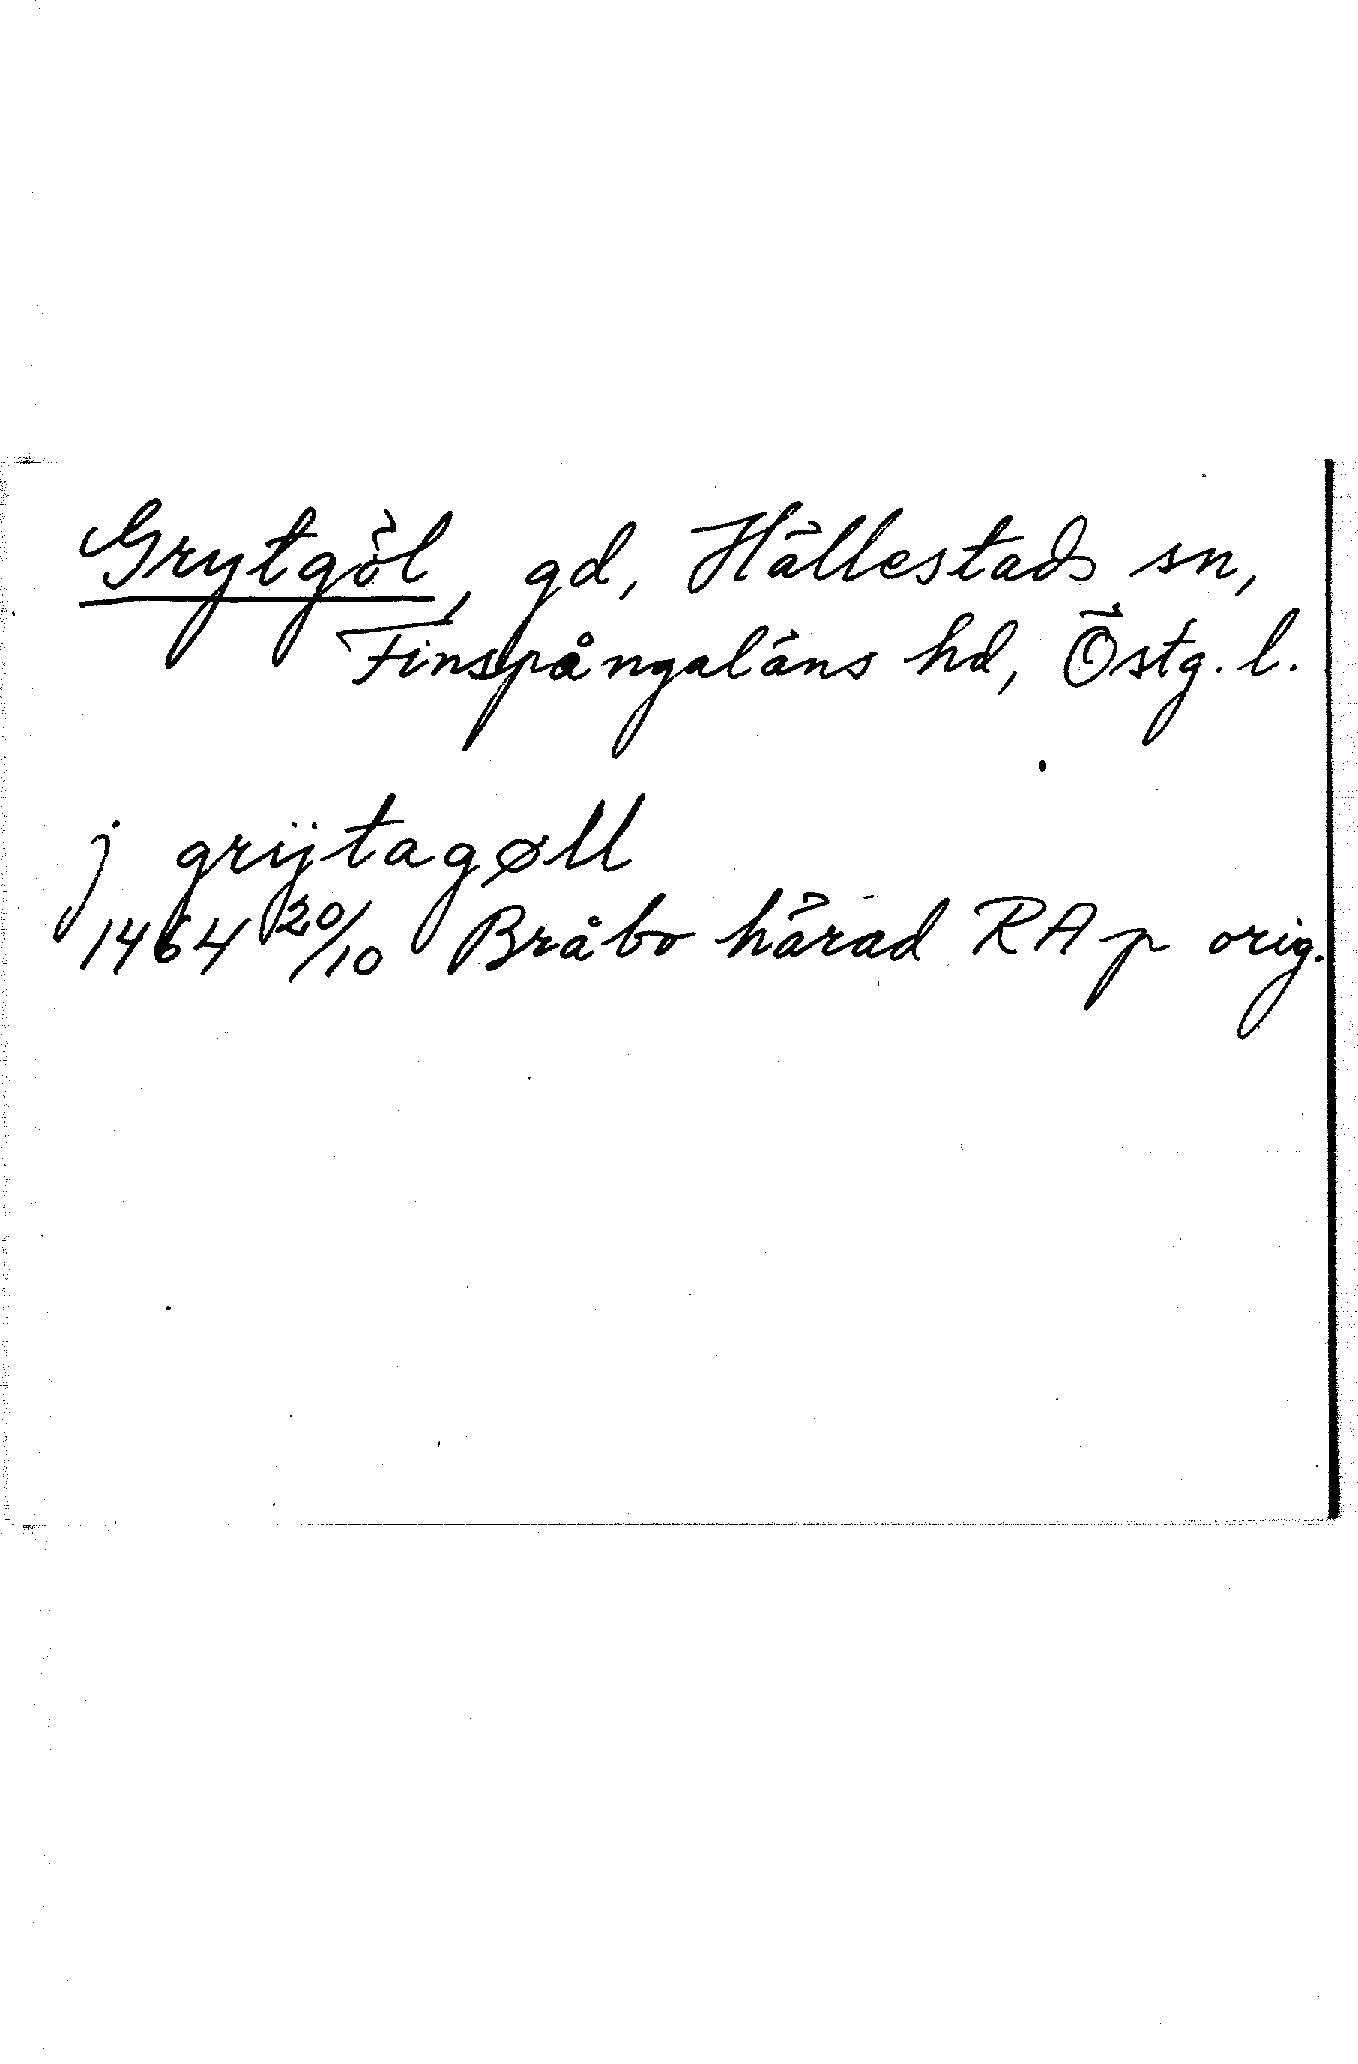 Grytgöl, gd, Hällestads sn,
Finspångaläns hd, Östg. l.
j grÿtagøll
1464 20/10 Bråbo härad RA p orig.